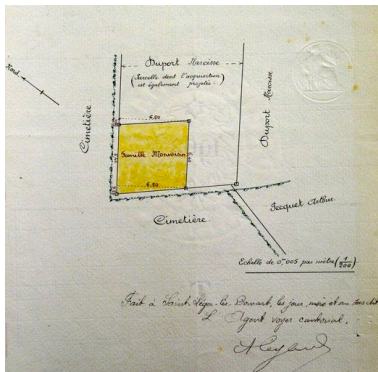 Nord
Duport Narcisse
(Parcelle dont l'acquisition
est également projetée.)
Cimetière
Duport Narcisse
6.80
Famille Monvoisin
6.80
Cimetière
Jecquet Arthur
Echelle de 0m005 par mètre (1/200)
Fait à Saint Léger-les-Domart, les jour, mois et an dits
L'Agent voyer cantonal.